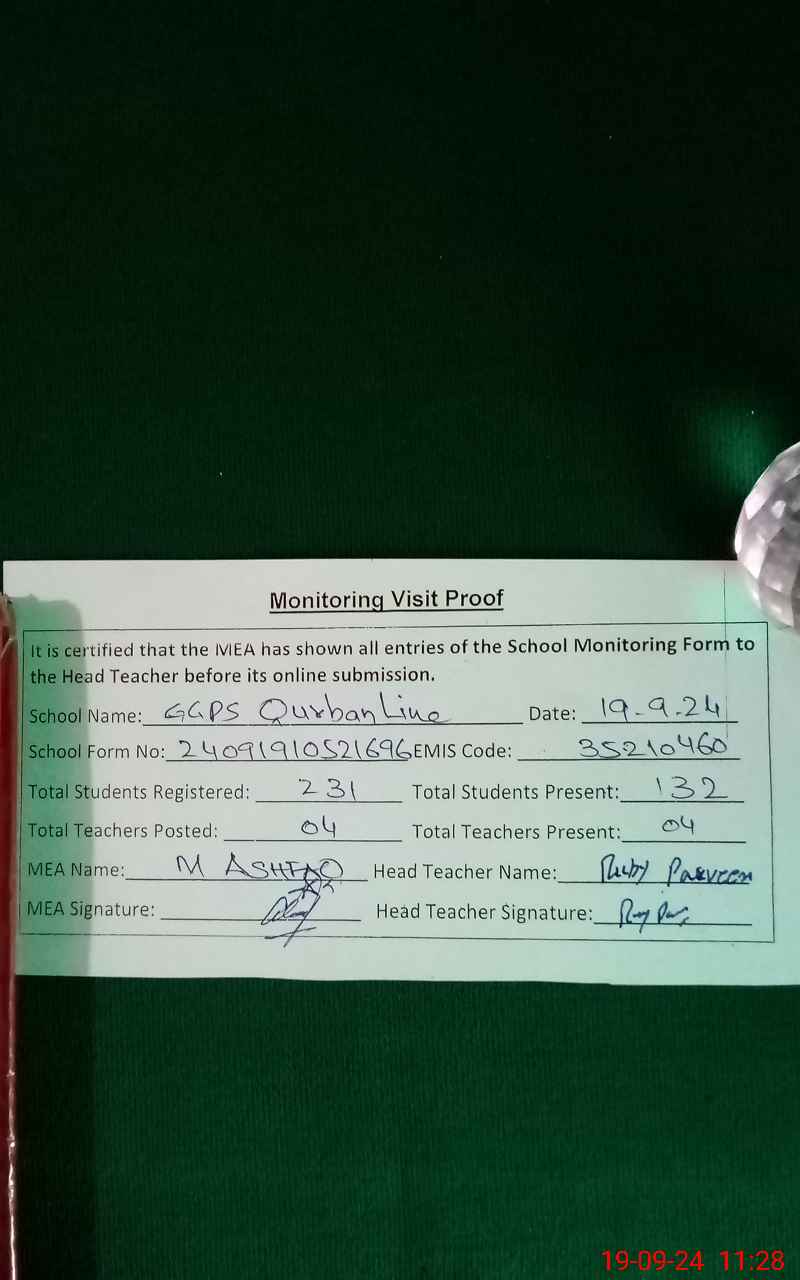 Monitoring Visit Proof
It is certified that the MEA has shown all entries of the School Monitoring Form to
the Head Teacher before its online submission.
School Name: GGPS Qurban Line Date: 19-9-24
School Form No: 24091910521696 EMIS Code: 35210460
Total Students Registered: 231 Total Students Present: 132
Total Teachers Posted: 04 Total Teachers Present: 04
MEA Name: M ASHFAQ Head Teacher Name: Ruby Parveen
MEA Signature: Head Teacher Signature:
19-09-24 11:28